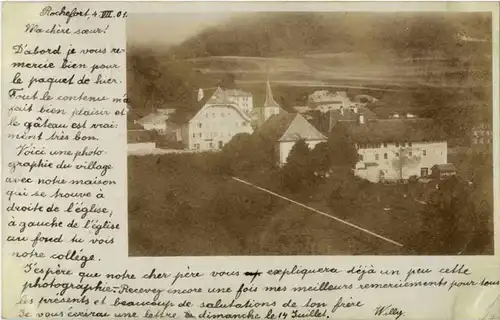 Rochefort, 4. VII. 01.
Ma chère sœur!
D'abord je vous re-
mercie bien pour
le paquet de hier.
Tout le contenu m'a
fait bien plaisir et
le gâteau est vrai-
ment très bon.
Voici une photo-
graphie du village
avec notre maison
qui se trouve à
droite de l'église,
à gauche de l'église
au fond tu vois
notre collége.
J'espère que notre cher père vous expliquera déjà un peu cette
photographie.- Recevez encore une fois mes meilleurs remerciements pour tous
les présents et beaucoup de salutations de ton frère
Je vous écrirai une lettre dimanche le 14 Juillet. Willy.